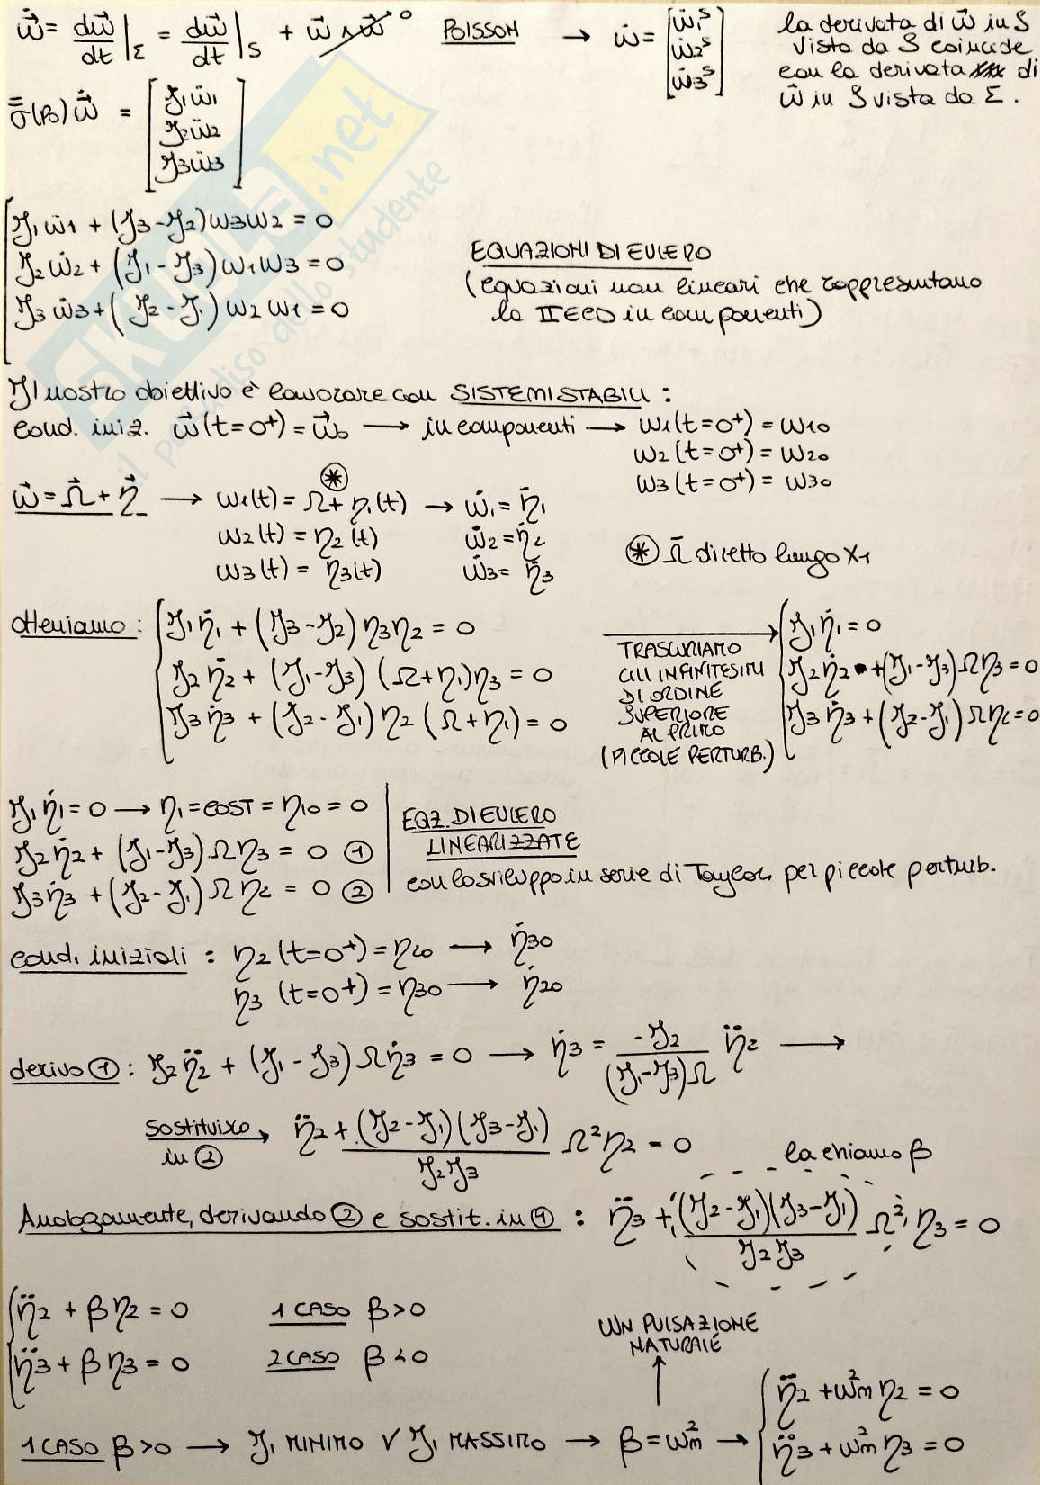 ω̇⃗ = dω⃗/dt|Σ = dω⃗/dt|S + ω⃗ ∧ ω⃗ ⁰ POISSON → ω̇ = [ω̇1ˢ ω̇2ˢ ω̇3ˢ] la derivata di ω⃗ in S
vista da S coincide
con la derivata di
ω⃗ in S vista da Σ.
σ̿(P0) ω̇⃗ = [J1ω̇1 J2ω̇2 J3ω̇3]
J1 ω̇1 + (J3-J2) ω3ω2 = 0
J2 ω̇2 + (J1-J3) ω1ω3 = 0
J3 ω̇3 + (J2-J1) ω2ω1 = 0
EQUAZIONI DI EULERO
(equazioni non lineari che rappresentano
la IIECD in componenti)
Il nostro obiettivo è lavorare con SISTEMI STABILI :
cond. iniz. ω⃗(t=0⁺) = ω⃗0 → in componenti → ω1(t=0⁺) = ω10
ω2(t=0⁺) = ω20
ω3(t=0⁺) = ω30
ω⃗ = Ω⃗ + η⃗ → ω1(t) = Ω + η1(t) → ω̇1 = η̇1
ω2(t) = η2(t) ω̇2 = η̇2
ω3(t) = η3(t) ω̇3 = η̇3
⊛ Ω⃗ diretto lungo x1
otteniamo: J1η̇1 + (J3-J2) η3η2 = 0
J2η̇2 + (J1-J3) (Ω+η1)η3 = 0
J3η̇3 + (J2-J1) η2 (Ω+η1) = 0
TRASCURIAMO
GLI INFINITESIMI
DI ORDINE
SUPERIORE
AL PRIMO
(PICCOLE PERTURB.)
J1η̇1 = 0
J2η̇2 + (J1-J3)Ωη3 = 0
J3η̇3 + (J2-J1)Ωη2 = 0
J1η̇1 = 0 → η1 = COST = η10 = 0
J2η̇2 + (J1-J3) Ωη3 = 0 ①
J3η̇3 + (J2-J1) Ωη2 = 0 ②
EQZ. DI EULERO
LINEARIZZATE
con lo sviluppo in serie di Taylor, per piccole perturb.
cond. iniziali : η2(t=0⁺) = η20 → η̇30
η3 (t=0⁺) = η30 → η̇20
derivo ① : J2η̈2 + (J1-J3) Ωη̇3 = 0 → η̇3 = -J2/(J1-J3)Ω η̈2 →
sostituisco in ② → η̈2 + (J2-J1)(J3-J1)/J2J3 Ω²η2 = 0
la chiamo β
Analogamente, derivando ② e sostit. in ① : η̈3 + (J2-J1)(J3-J1)/J2J3 Ω² η3 = 0
η̈2 + βη2 = 0 1 CASO β>0
η̈3 + βη3 = 0 2 CASO β<0
ωn PULSAZIONE
NATURALE
1 CASO β>0 → J1 MINIMO ∨ J1 MASSIMO → β = ωn² → η̈2 + ωn²η2 = 0
η̈3 + ωn²η3 = 0
SKUOLA.net
il paradiso dello studente